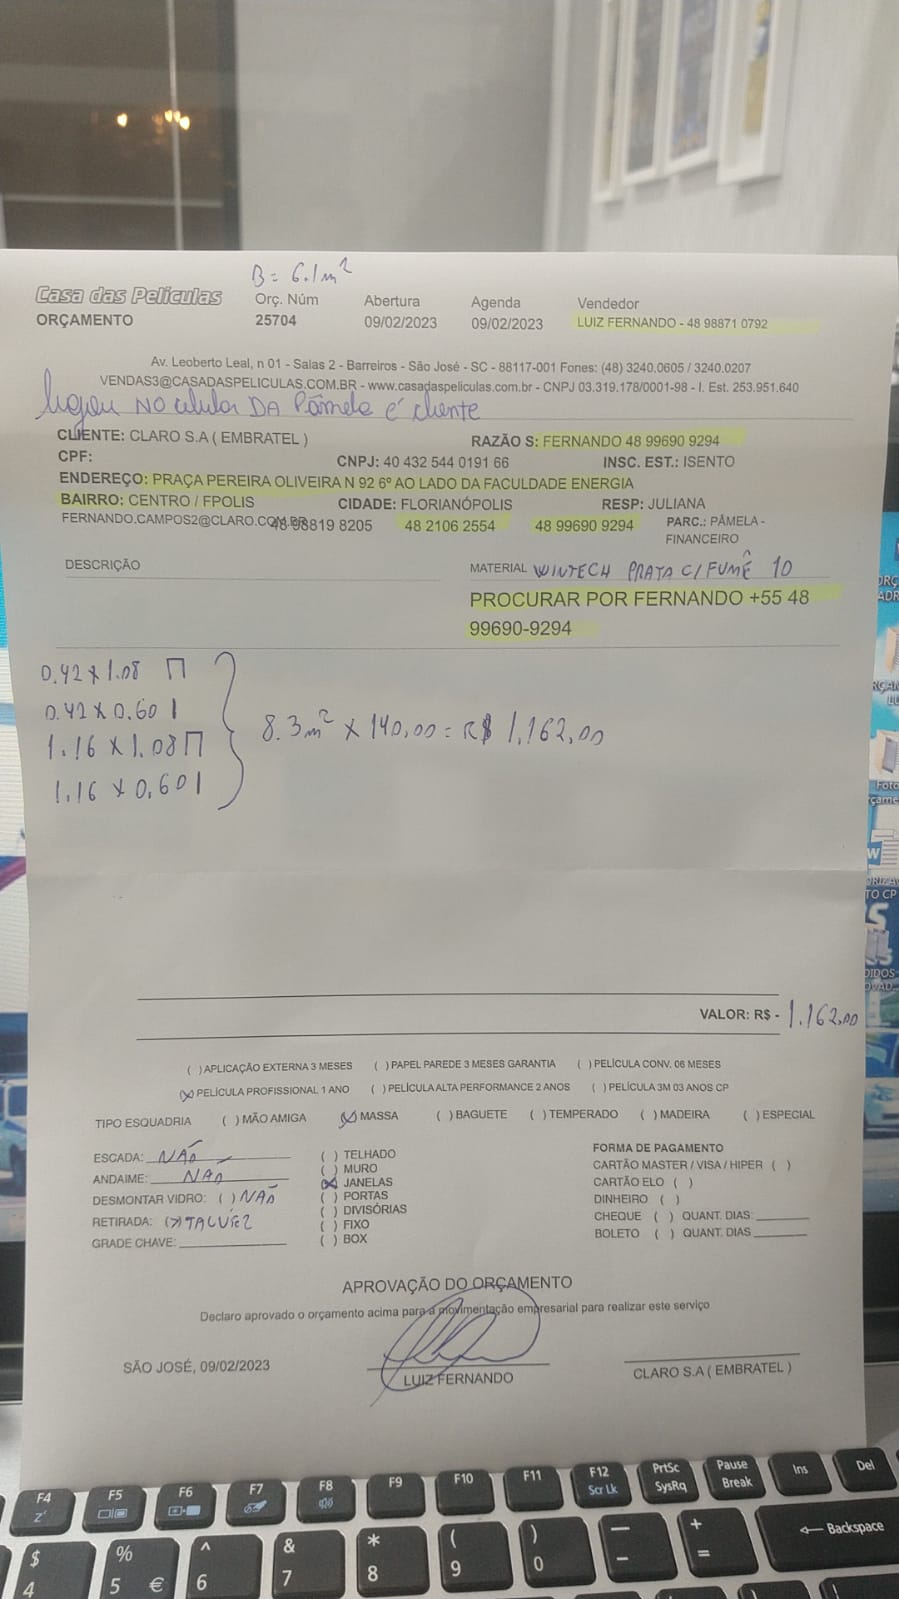 B = 6.1m²
Casa das Películas
ORÇAMENTO
Orç. Núm
25704
Abertura
09/02/2023
Agenda
09/02/2023
Vendedor
LUIZ FERNANDO - 48 98871 0792
Av. Leoberto Leal, n 01 - Salas 2 - Barreiros - São José - SC - 88117-001 Fones: (48) 3240.0605 / 3240.0207
VENDAS3@CASADASPELICULAS.COM.BR - www.casadaspeliculas.com.br - CNPJ 03.319.178/0001-98 - I. Est. 253.951.640
ligou NO celular DA Pâmela é cliente
CLIENTE: CLARO S.A ( EMBRATEL )
RAZÃO S: FERNANDO 48 99690 9294
CPF:
CNPJ: 40 432 544 0191 66
INSC. EST.: ISENTO
ENDEREÇO: PRAÇA PEREIRA OLIVEIRA N 92 6º AO LADO DA FACULDADE ENERGIA
BAIRRO: CENTRO / FPOLIS
CIDADE: FLORIANÓPOLIS
RESP: JULIANA
FERNANDO.CAMPOS2@CLARO.COM.BR
48 98819 8205
48 2106 2554
48 99690 9294
PARC.: PÂMELA -
FINANCEIRO
DESCRIÇÃO
MATERIAL WINTECH PRATA C/FUMÊ 10
PROCURAR POR FERNANDO +55 48
99690-9294
0.42 x 1.08
0.42 x 0.60
1.16 x 1.08
1.16 x 0.60
8.3m² x 140,00 = R$ 1.162,00
VALOR: R$ - 1.162,00
( ) APLICAÇÃO EXTERNA 3 MESES ( ) PAPEL PAREDE 3 MESES GARANTIA ( ) PELÍCULA CONV. 06 MESES
(X) PELÍCULA PROFISSIONAL 1 ANO ( ) PELÍCULA ALTA PERFORMANCE 2 ANOS ( ) PELÍCULA 3M 03 ANOS CP
TIPO ESQUADRIA ( ) MÃO AMIGA (X) MASSA ( ) BAGUETE ( ) TEMPERADO ( ) MADEIRA ( ) ESPECIAL
ESCADA: NÃO
ANDAIME: NÃO
DESMONTAR VIDRO: ( ) NÃO
RETIRADA: (X) TALVEZ
GRADE CHAVE:
( ) TELHADO
( ) MURO
(X) JANELAS
( ) PORTAS
( ) DIVISÓRIAS
( ) FIXO
( ) BOX
FORMA DE PAGAMENTO
CARTÃO MASTER / VISA / HIPER ( )
CARTÃO ELO ( )
DINHEIRO ( )
CHEQUE ( ) QUANT. DIAS:
BOLETO ( ) QUANT. DIAS
APROVAÇÃO DO ORÇAMENTO
Declaro aprovado o orçamento acima para a movimentação empresarial para realizar este serviço
SÃO JOSÉ, 09/02/2023
LUIZ FERNANDO
CLARO S.A ( EMBRATEL )
F4
F5
F6
F7
F8
F9
F10
F11
F12
Scr Lk
PrtSc
SysRq
Pause
Break
Ins
Del
$ 4
% 5 €
^ 6
& 7
* 8
( 9
) 0
— -
+ =
← Backspace